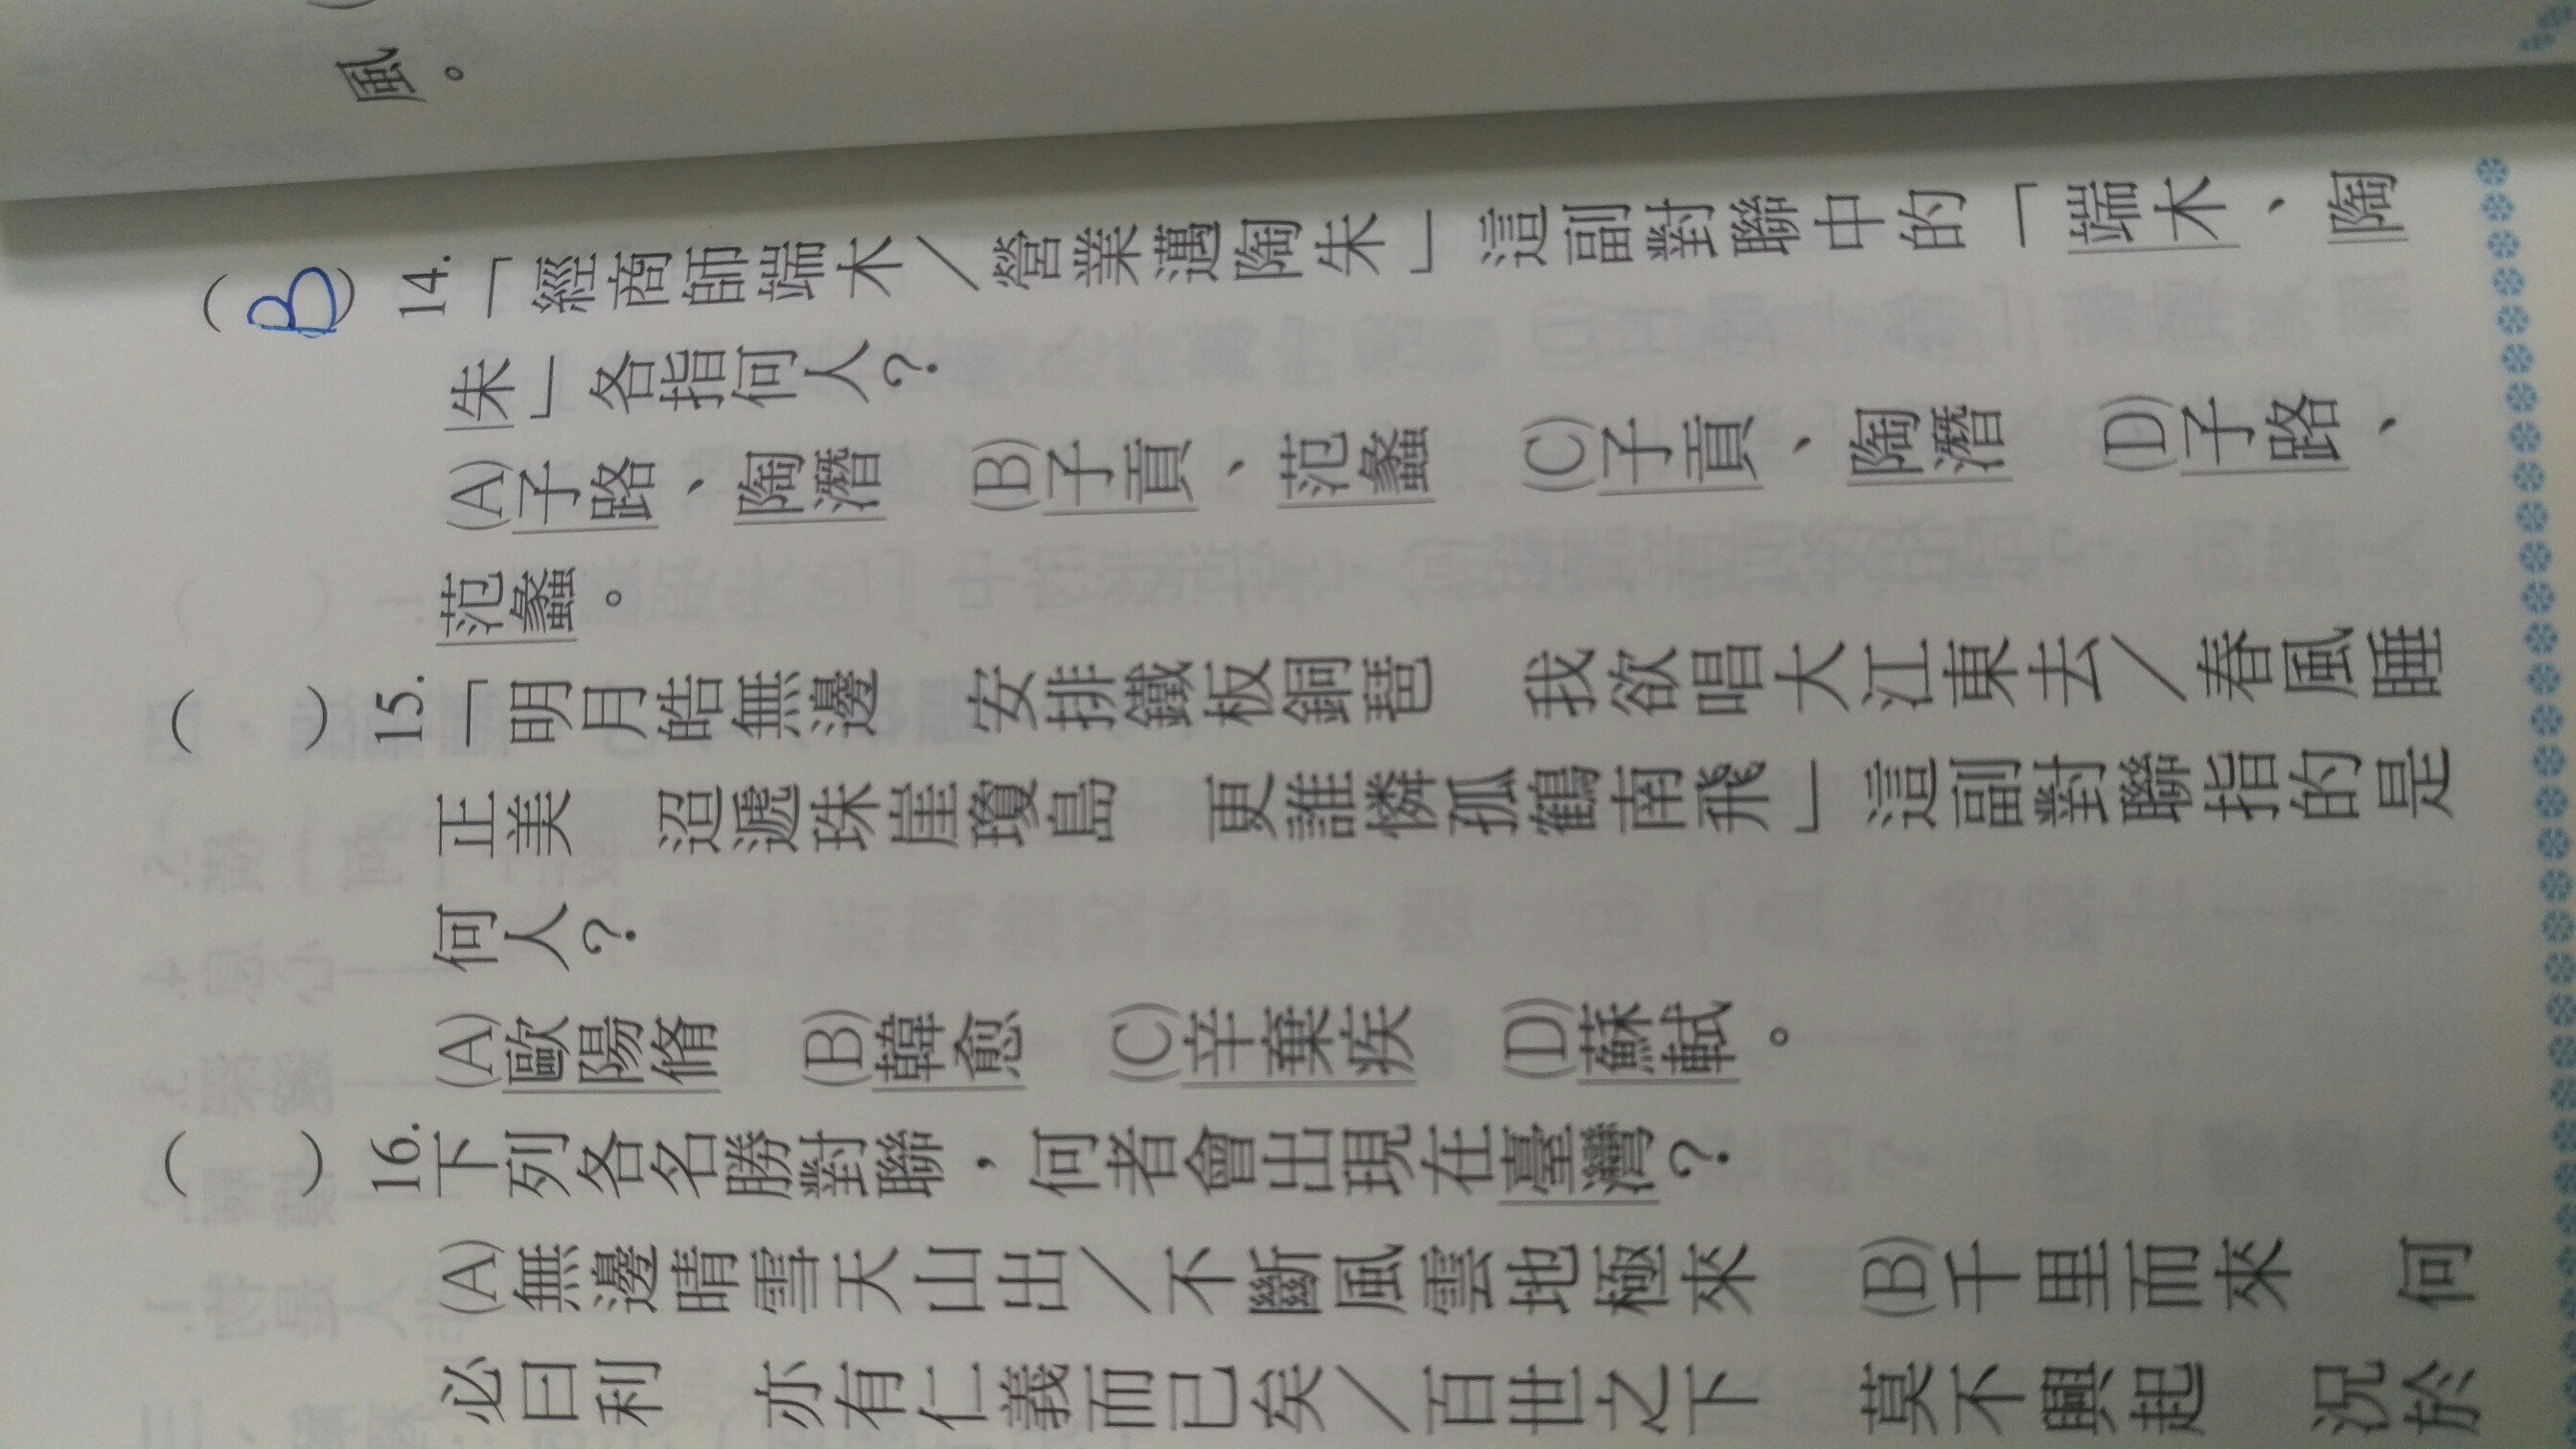 風。
(B) 14.「經商師端木／營業邁陶朱」這副對聯中的「端木、陶
朱」各指何人？
(A)子路、陶潛 (B)子貢、范蠡 (C)子貢、陶潛 (D)子路、
范蠡。
( ) 15.「明月皓無邊 安排鐵板銅琶 我欲唱大江東去／春風睡
正美 迢遞珠崖瓊島 更誰憐孤鶴南飛」這副對聯指的是
何人？
(A)歐陽脩 (B)韓愈 (C)辛棄疾 (D)蘇軾。
( ) 16.下列各名勝對聯，何者會出現在臺灣？
(A)無邊晴雪天山出／不斷風雲地極來 (B)千里而來 何
必曰利 亦有仁義而已矣／百世之下 莫不興起 況於